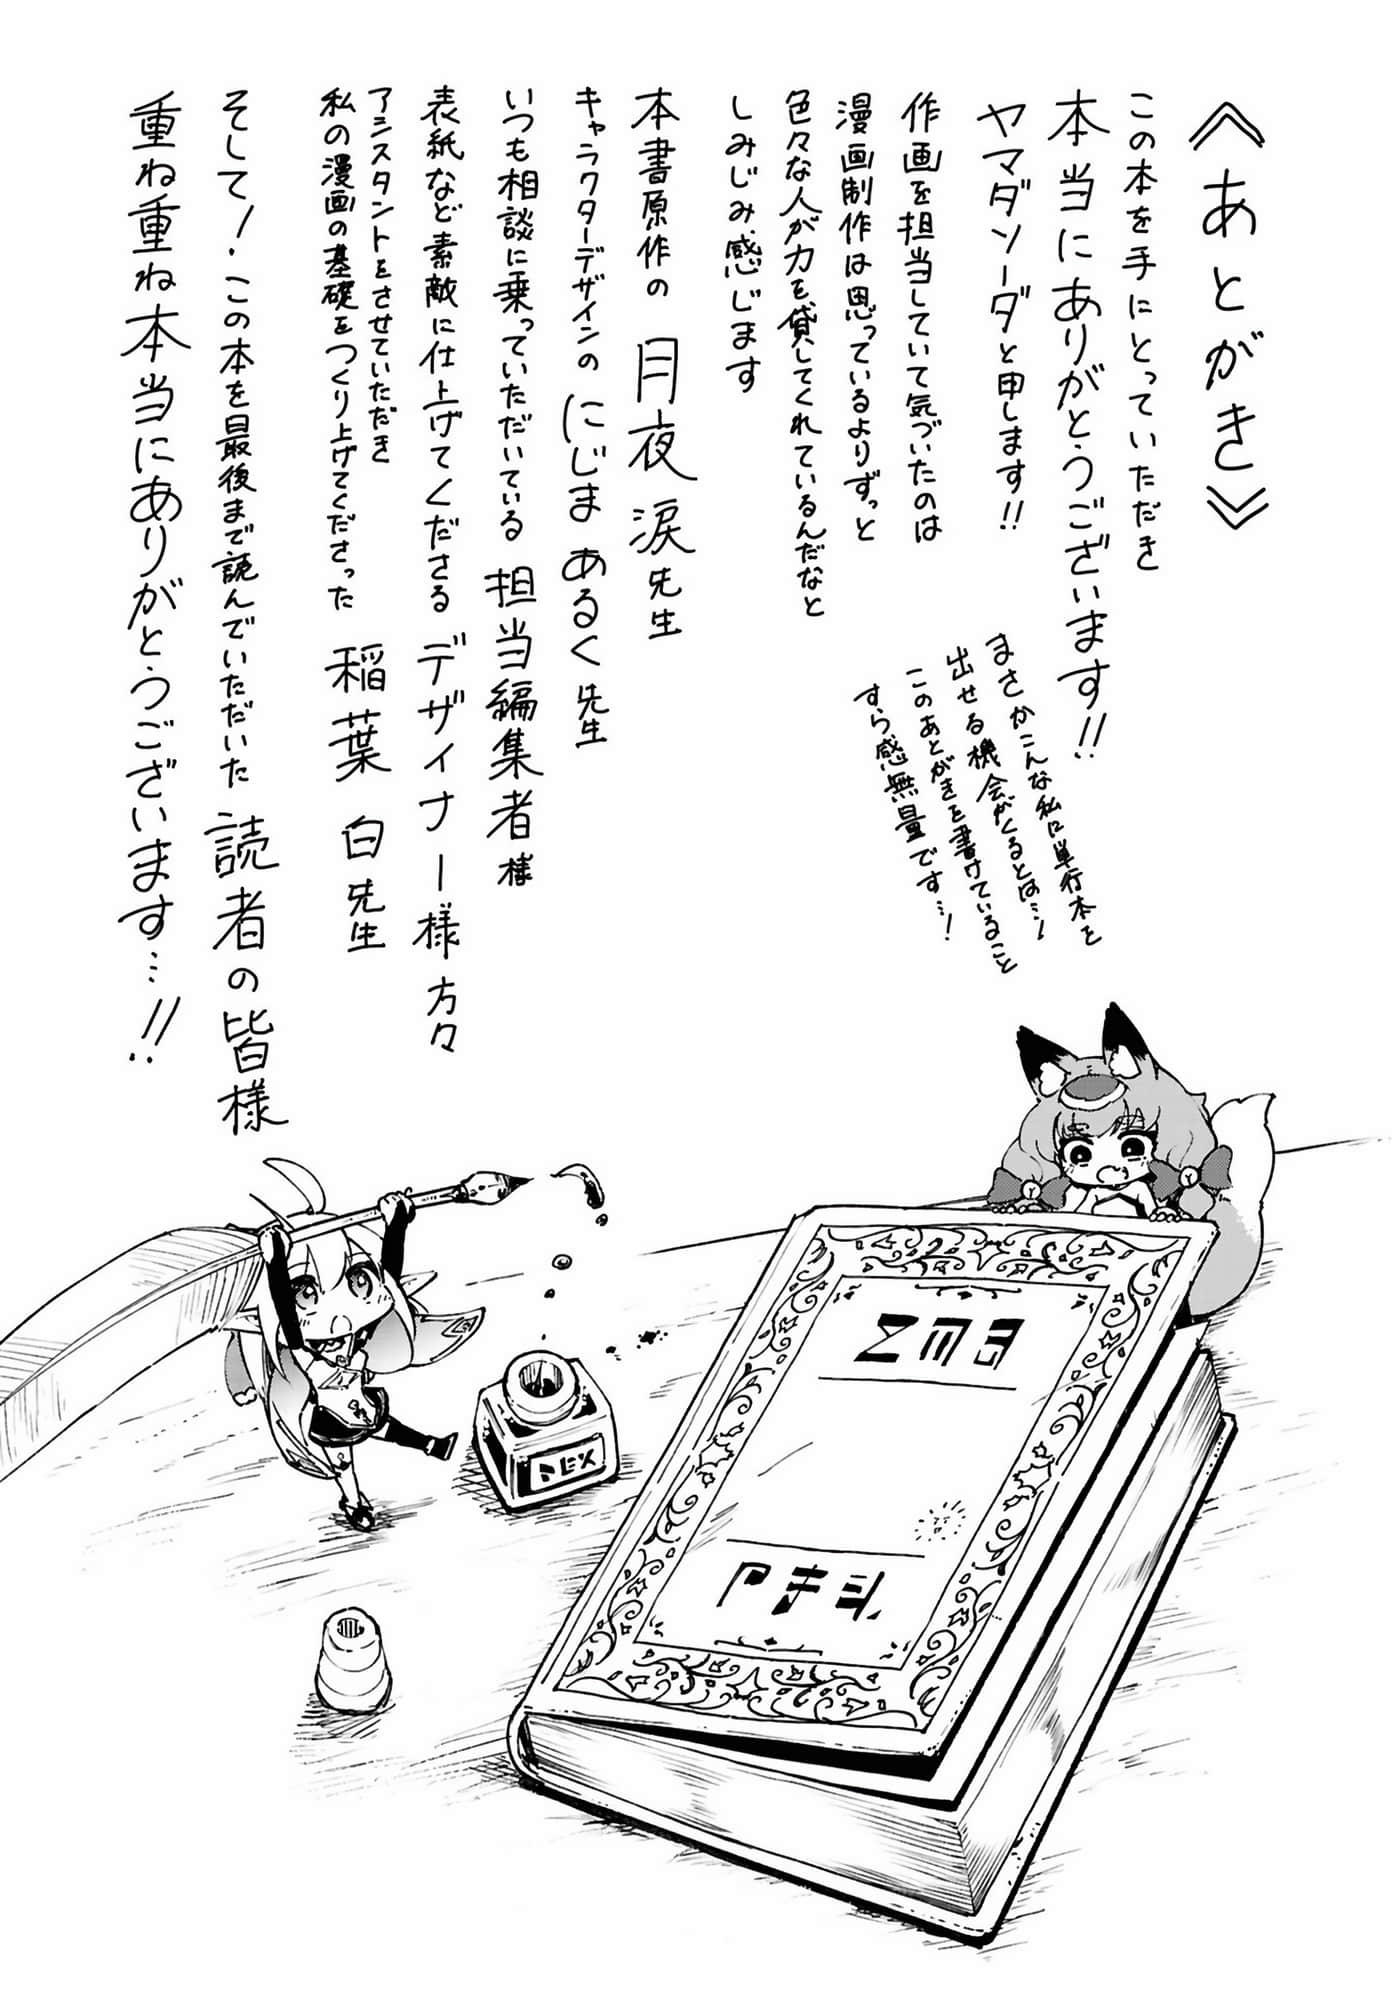 《あとがき》
この本を手にとっていただき
本当にありがとうございます!!
ヤマダソーダと申します!!
まさかこんな私に単行本を
出せる機会がくるとは…!
このあとがきを書けていること
すら感無量です…!
作画を担当していて気づいたのは
漫画制作は思っているよりずっと
色々な人が力を貸してくれているんだなと
しみじみ感じます
本書原作の 月夜 涙先生
キャラクターデザインの にじま あるく先生
いつも相談に乗っていただいている 担当編集者様
表紙など素敵に仕上げてくださる デザイナー様方々
アシスタントをさせていただき
私の漫画の基礎をつくり上げてくださった 稲葉 白先生
そして!この本を最後まで読んでいただいた 読者の皆様
重ね重ね本当にありがとうございます…!!